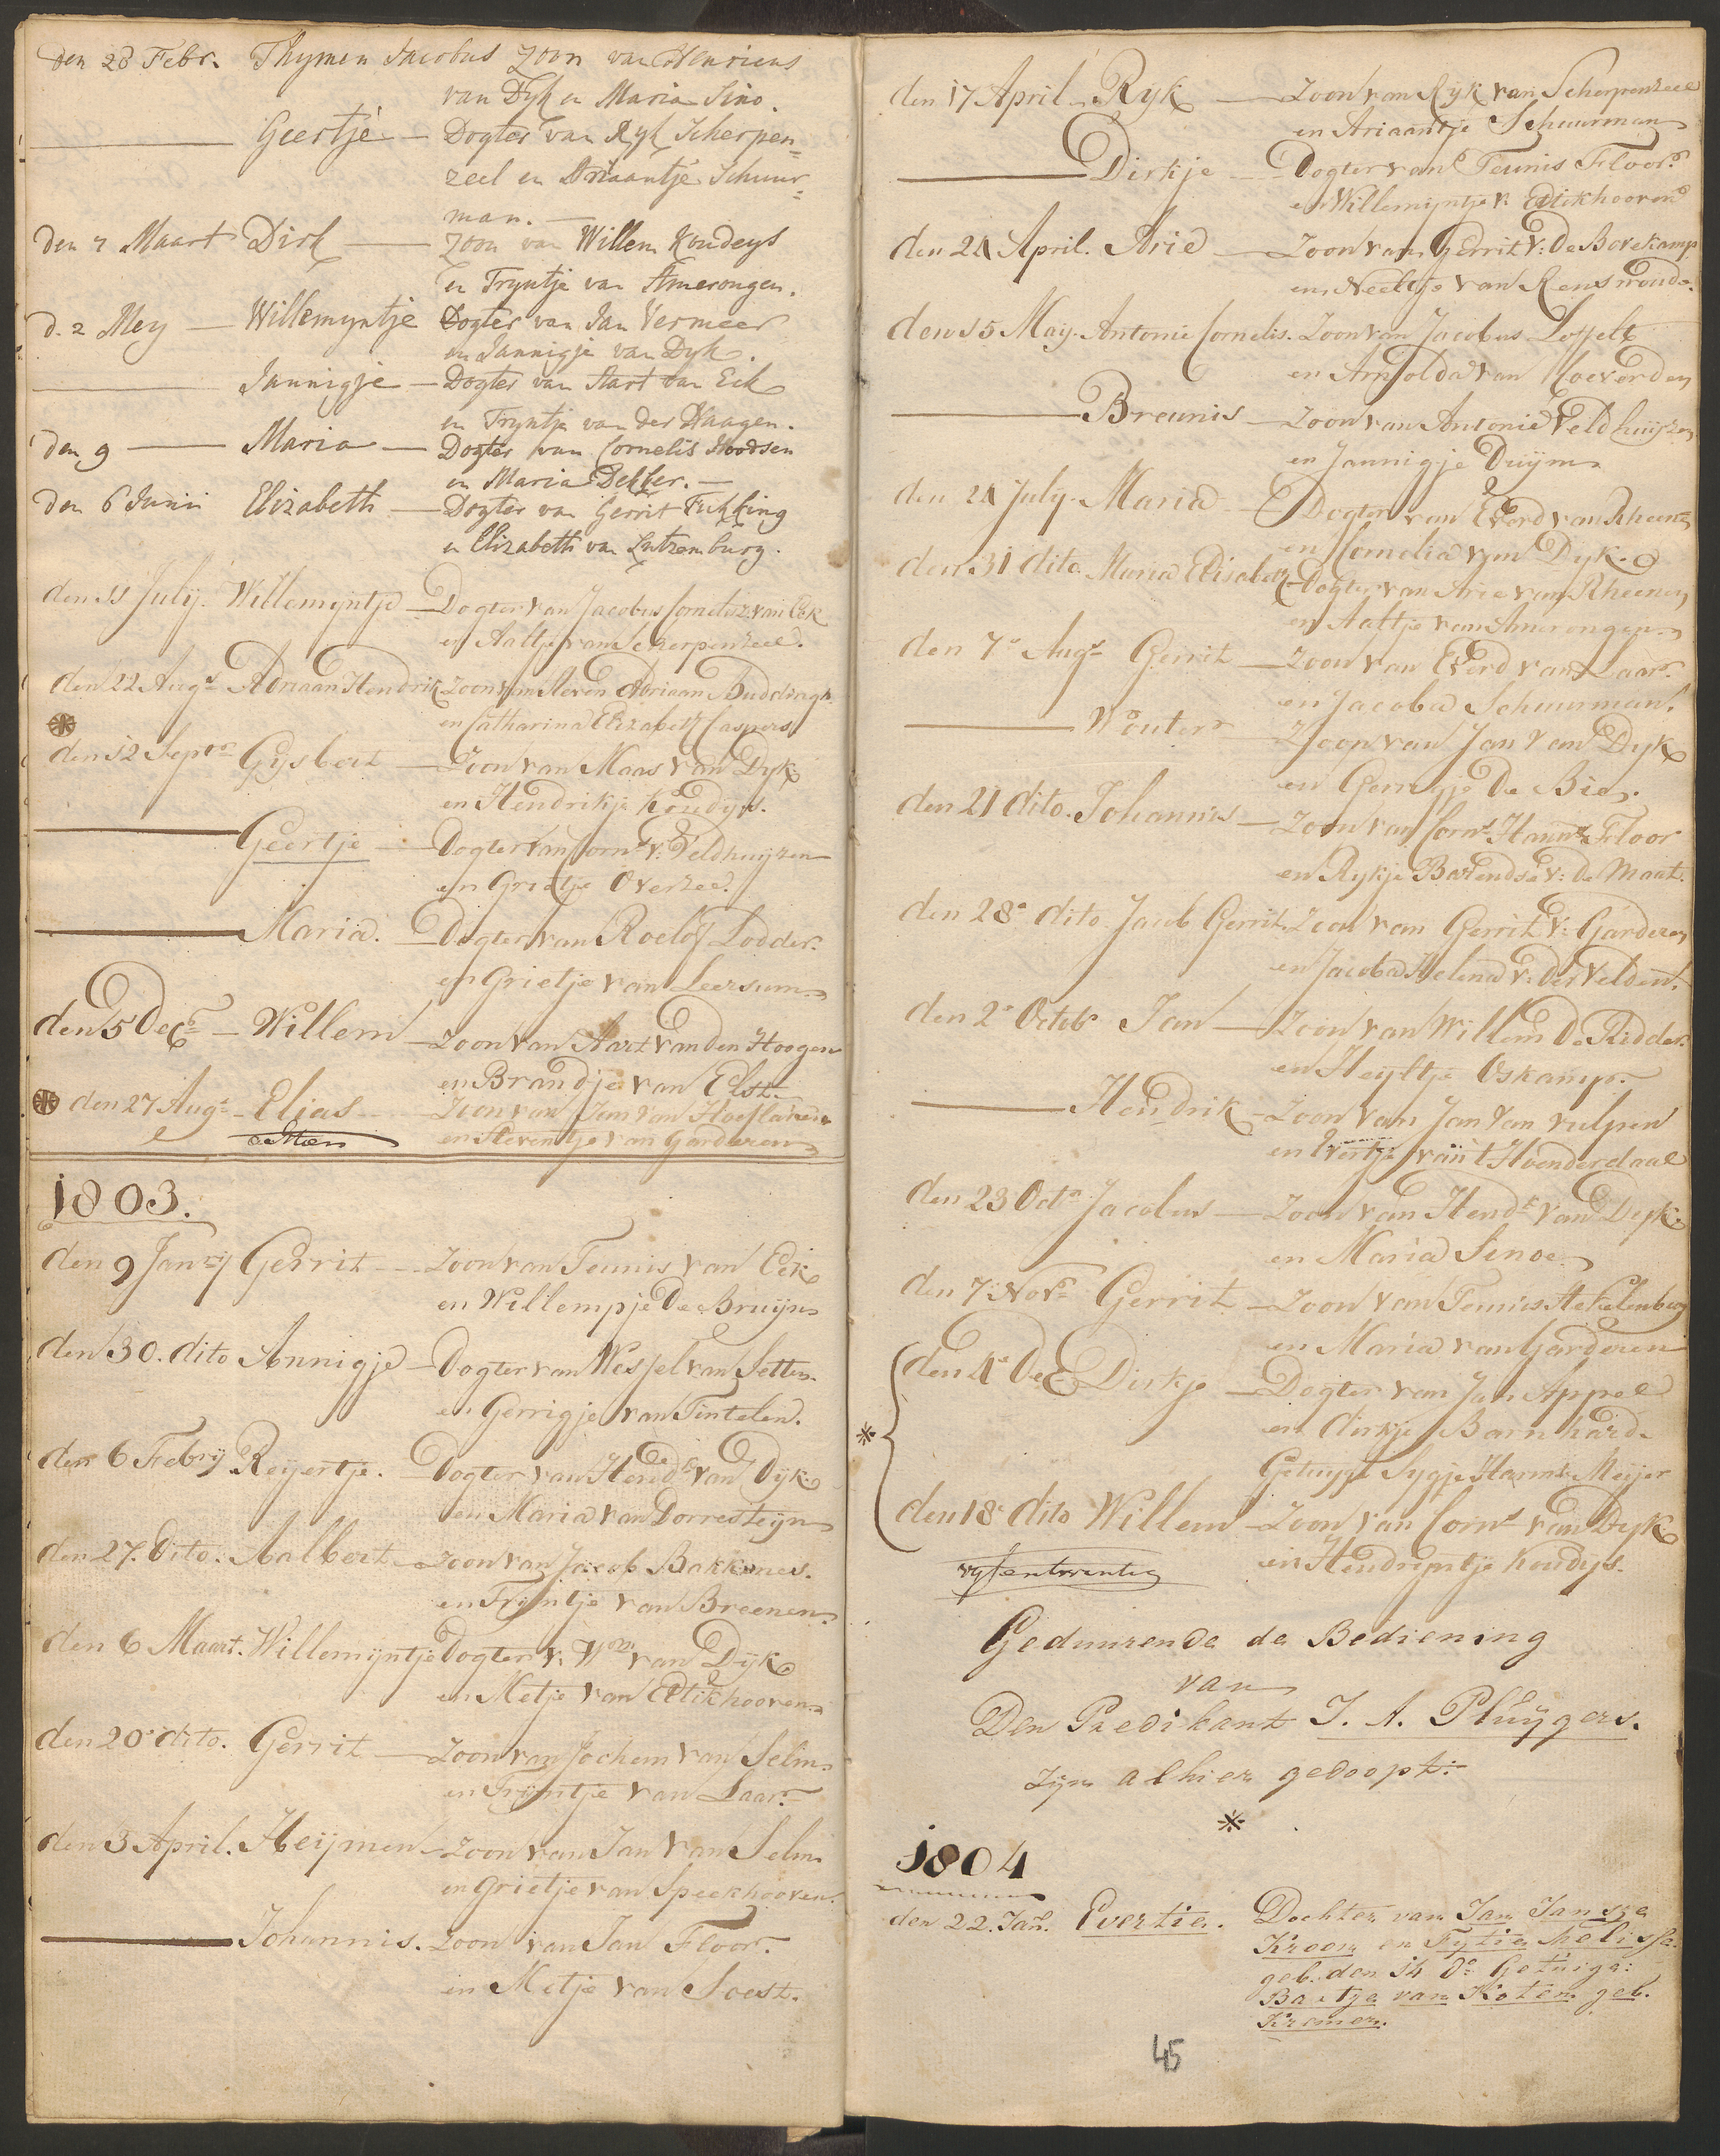 den 28 Febr. Thymen Jacobus Zoon van Henricus
van Dyk en Maria Sino.
Geertje — Dogter van Ryk Scherpen=
zeel en Adriaantje Schuur=
man. —
den 7 Maart Dirk — Zoon van Willem Koudeys
en Tryntje van Amerongen.
d. 2 Mey — Willemyntje Dogter van Jan Vermeer
en Jannigje van Dyk.
Jannigje — Dogter van Aart van Eck
en Tryntje van der Haagen.
den 9 — Maria — Dogter van Cornelis
en Maria Dekker. —
den 6 Junii Elizabeth — Dogter van Gerrit Fukking
en Elizabeth van Lutzemburg.
den 11 July. Willemyntje — Dogter van Jacobus Cornelisz. van Eck
en Aaltje van Scherpenzeel.
den 22 Augs. Adriaan Hendrik Zoon van Steven Adriaan Buddingh
en Catharina Elizabeth Caspers
den 12 Septr. Gysbert — Zoon van Maas van Dyk
en Hendrikje Koudys.
Geertje — Dogter van Corns. v: Veldhuyzen
en Grietje Overzee.
Maria. — Dogter van Roelof Lodder.
en Grietje van Leersum.
den 5 Decr. — Willem — Zoon van Aart van den Hoogen
en Brandje van Elst.
den 27 Augs. — Elias — Zoon van Jan van Hoeflaken
en Steventje van Garderen
1803.
den 9 Janry Gerrit — Zoon van Teunis van Eck
en Willempje De Bruyn
den 30. dito Annigje — Dogter van Wessel van Setten.
en Gerrigje van Tintelen.
den 6 Febry Reyertje. — Dogter van Hendk. van Dyk
en Maria van Dorresteyn
den 27. dito. Aalbert — Zoon van Jacob Bakkenes.
en Tryntje van Breenen.
den 6 Maart. Willemyntje Dogter v: Wm. van Dyk
en Metje van Ettikhooven.
den 20 dito. Gerrit — Zoon van Jochem van Selm.
en Tryntje van Laar.
den 3 April. Heymen — Zoon van Jan van Selm
en Grietje van Speekhooven.
Johannis. Zoon van Jan Floor.
en Metje van Soest.
den 17 April — Ryk — Zoon van Ryk van Scherpenzeel
en Ariaantje Schuurman
Dirkje — Dogter van Teunis Floor.
en Willemyntje v: Ettikhooven
den 24 April. Arie — Zoon van Gerrit v: De Bovekamp
en Neeltje van Renswoude.
den 15 May. Antonie Cornelis. Zoon van Jacobus Loffelt
en Arnolda van Coeverden
Breunis — Zoon van Antonie Veldhuyzen
en Jannigje Duym
den 24 July. Maria — Dogter van Everd van Rheenen
en Cornelia van Dyk.
den 31 dito. Maria Elisabeth — Dogter van Arie van Rheenen
en Aaltje van Amerongen
den 7e Augs. Gerrit — Zoon van Everd van Laar.
en Jacoba Schuurman.
Wouter — Zoon van Jan van Dyk
en Gerrigje De Bie.
den 21 dito. Johannis — Zoon van Corns. Hannsz. Floor
en Rykje Barendse v: De Maat.
den 28e dito Jacob Gerrit. Zoon van Gerrit v: Garderen
en Jacoba Helena v: der Velden.
den 2e Octob. Jan — Zoon van Willem De Ridder.
en Heyltje Oskamp.
Hendrik — Zoon van Jan van Vulpen
en Evertje van t Hoenderdaal
den 23 Octr. Jacobus — Zoon van Hendk. van Dyk
en Maria Senoe
den 7. Novr. Gerrit — Zoon van Teunis Stekelenburg
en Maria van Garderen
den 4e Dec Dirkje — Dogter van Jan Appel
en Dirkje Barnhard.
Getuyge Sygje Harms. Meyer
den 18 dito Willem — Zoon van Corns. van Dyk
en Hendryntje Koudys.
vyfentwentig
Geduurende de Bediening
van
Den Predikant J. A. Pluygers.
zyn alhier gedoopt:
1804
den 22. Jan. Evertie. Dochter van Jan Jansze
Kroon en Fytie Melisse.
geb. den 14 do. Getuige:
Baetje van Koten geb.
Kremer.
45